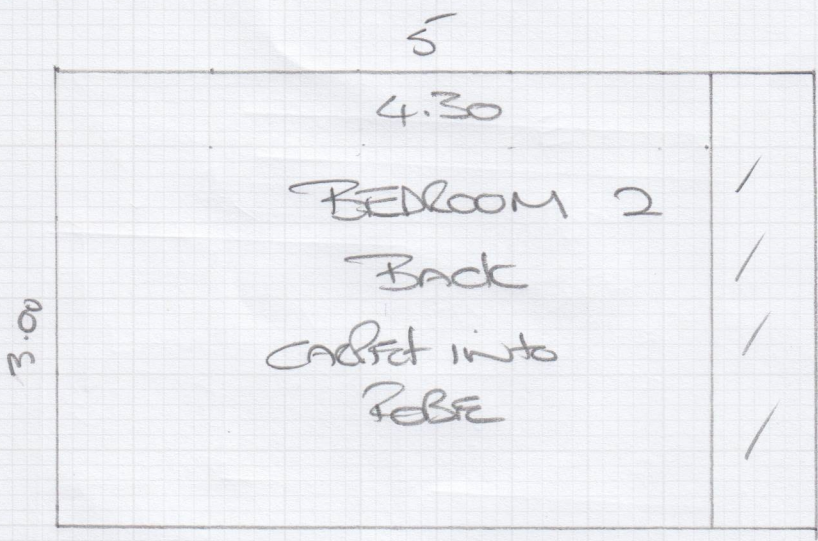 5
4.30
BEDROOM 2
BACK
3.00
CARPET INTO
ROBE